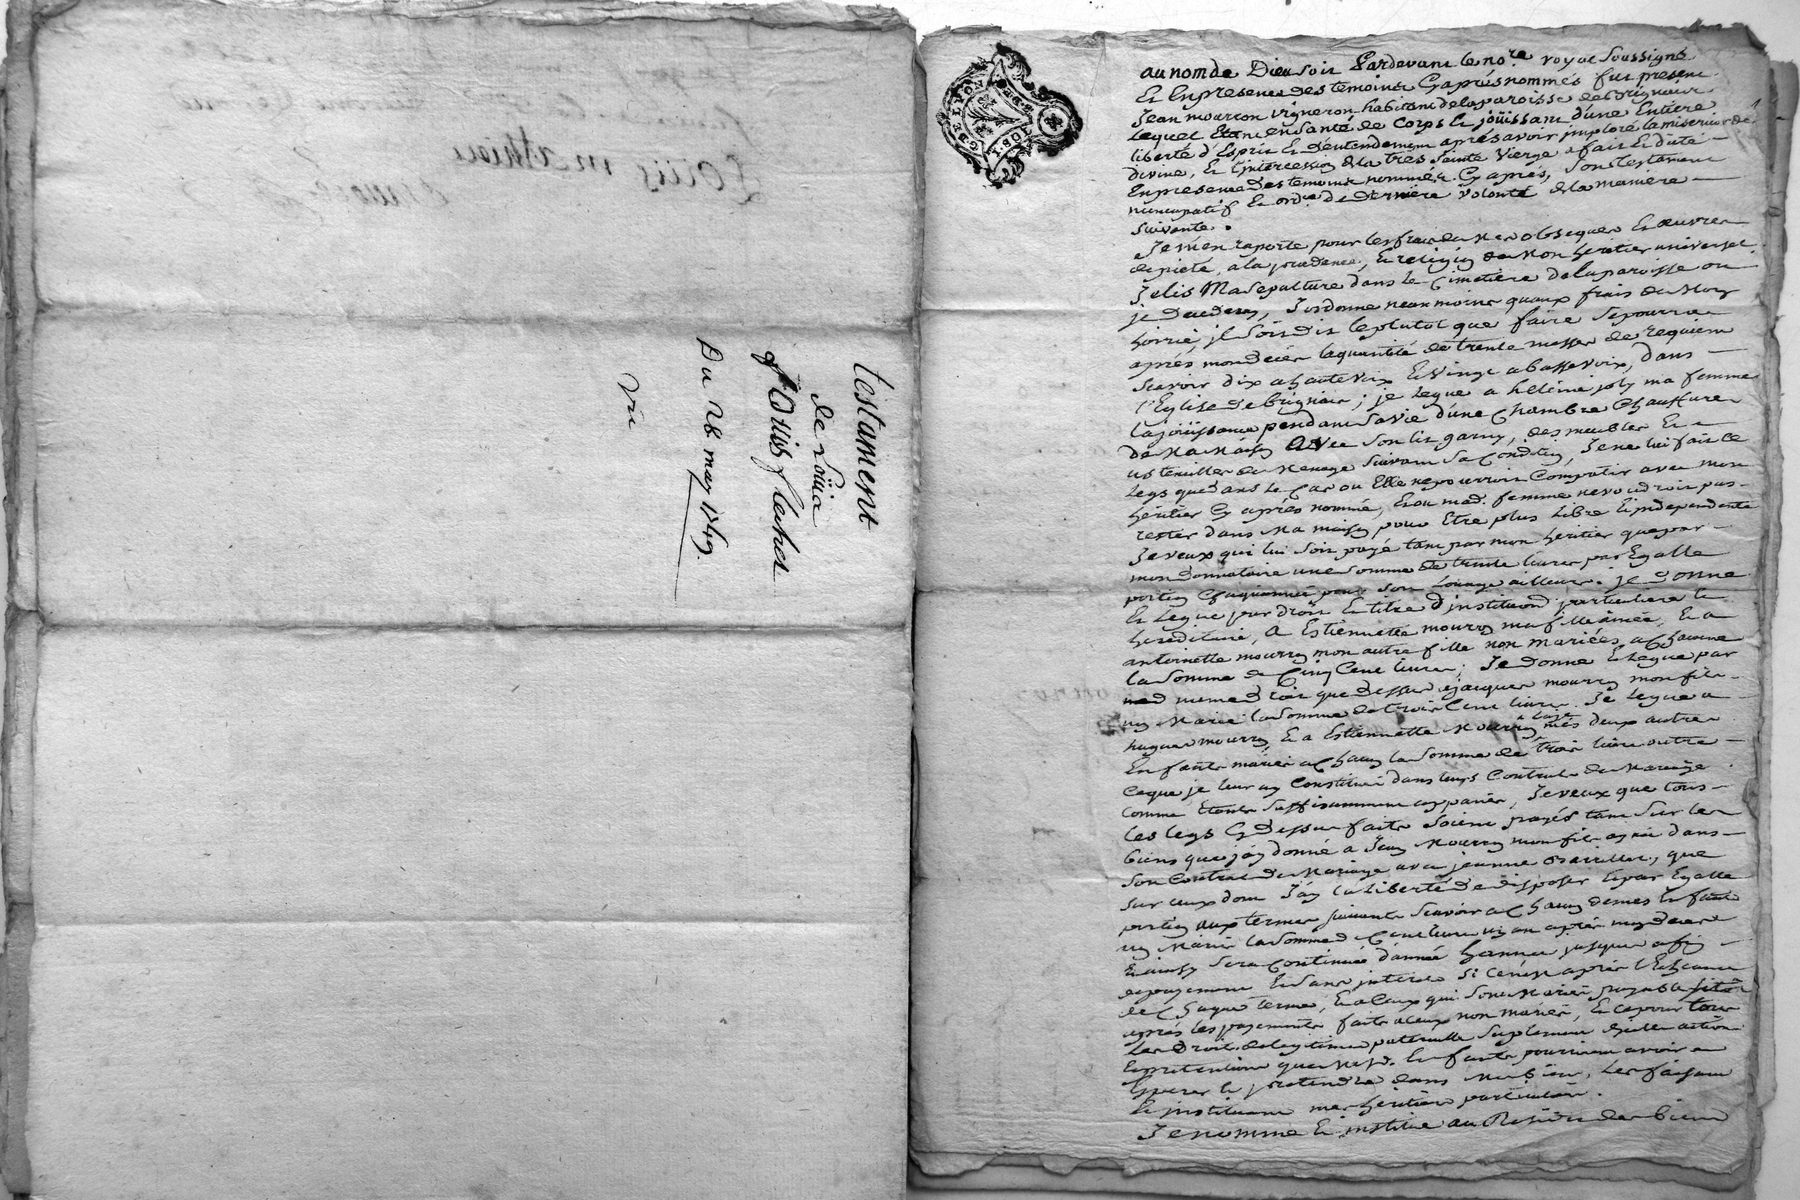 testament
de Loüis
Loüis flechet
Du 28 may 1749.
Vu
Louis mathieu
G. DE LYON
au nom de Dieu soit Pardevant le no.re royal soussigné
Et En presence des temoins Cy aprés nommés fut present
Jean mourron vigneron habitant de la paroisse de Brignais
Lequel Etant en santé de Corps Et joüissant d'une Entiere
liberté d'Esprit Et d'entendement aprés avoir jmploré la misericorde
divine, Et l'jntercession de la tres sainte Vierge a fait Et dicté
En presence des temoins nommés Cy aprés, son testament
nuncupatif Et ord.ce de derniere volonté de la maniere
suivante.
Je m'en raporte pour les frais de mes obseques Et œuvres
de pieté, a la prudence, Et religion de mon heritier universel
J'elis Ma sepulture dans le Cimetiere de la paroisse ou
je decederay, J'ordonne neanmoins quaux frais de Mon
hoirie, jl soit dit le plutot que faire se pourra
aprés mon decés la quantité de trente messes de requiem
sçavoir dix a haute voix Et vingt a basse voix, dans
l'Eglise de Brignais; je legue a helene joly ma femme
la joüissance pendant sa vie d'une Chambre Chauffure
de Ma Maison avec son lit garny, des meubles Et
ustenciles de Menage suivant sa Condition, Je ne lui fais ce
legs que dans le Cas ou Elle ne pourroit Compatir avec mon
héritier Cy aprés nommé, Et ou mad. femme ne voudroit pas
rester dans Ma maison pour Etre plus libre Et jndependante
Je veux qui lui soit payé tant par mon heritier que par
mon donnataire une somme de trente livres par Egalle
portion Chaque année pour son Louage ailleurs. je donne
Et legue par droit Et titre d'jnstitution particuliere Et
hereditaire, a Estiennette mourron ma fille ainée, Et a
antoinette mourron mon autre fille non mariées, a Chacune
la somme de Cinq Cent livres; Je donne Et legue par
meme droit que dessus a jacques mourron mon fils
non Marié la somme de trois Cent livres. Je legue a
hugues mourron, Et a Estiennette Mourron mes deux autres
Enfants mariés a Chacun la somme de trois livres outre
Ce que je leur ay Constitué dans leurs Contrats de Mariage
Comme Etants suffisamment appanés, Je veux que tous
les legs Cy dessus faits soient payés tant sur les
biens que j'ay donné a Jean Mourron mon fils ainé dans
son Contrat de Mariage avec jeanne, que
sur ceux dont J'ay la liberté de disposer Et par Egalle
portion aux termes suivants sçavoir a Chacun de mes Enfants
non Mariés la somme de Cent livres un an aprés mon decés
Et ainsy sera Continuée d'année En année jusques a fin
de payement Et sans jnterets si ce n'est aprés l'Echeance
de Chaque terme, Et a Ceux qui sont Mariés payable sitôt
aprés les payements faits a Ceux non mariés, Et ce pour tous
Les droits de legitime paternelle suplement d'jcelle actions
Et pretentions que Mesd. Enfants pourroient avoir
Esperer Et pretendre dans Mes biens, Les faisant
Et jnstituant mes heritiers particuliers.
Je nomme Et jnstitue au Residu des biens